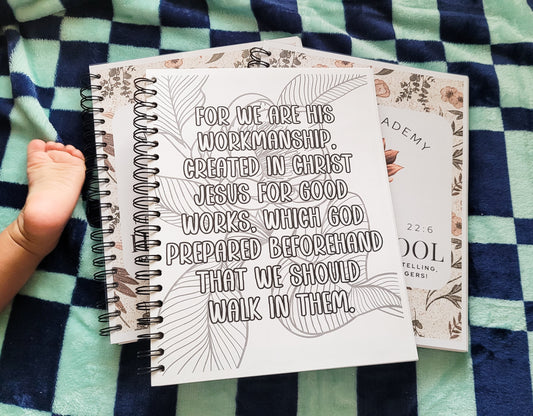 FOR WE ARE HIS
WORKMANSHIP,
CREATED IN CHRIST
JESUS FOR GOOD
WORKS, WHICH GOD
PREPARED BEFOREHAND
THAT WE SHOULD
WALK IN THEM.
ADEMY
22:6
OOL
TELLING,
GERS!